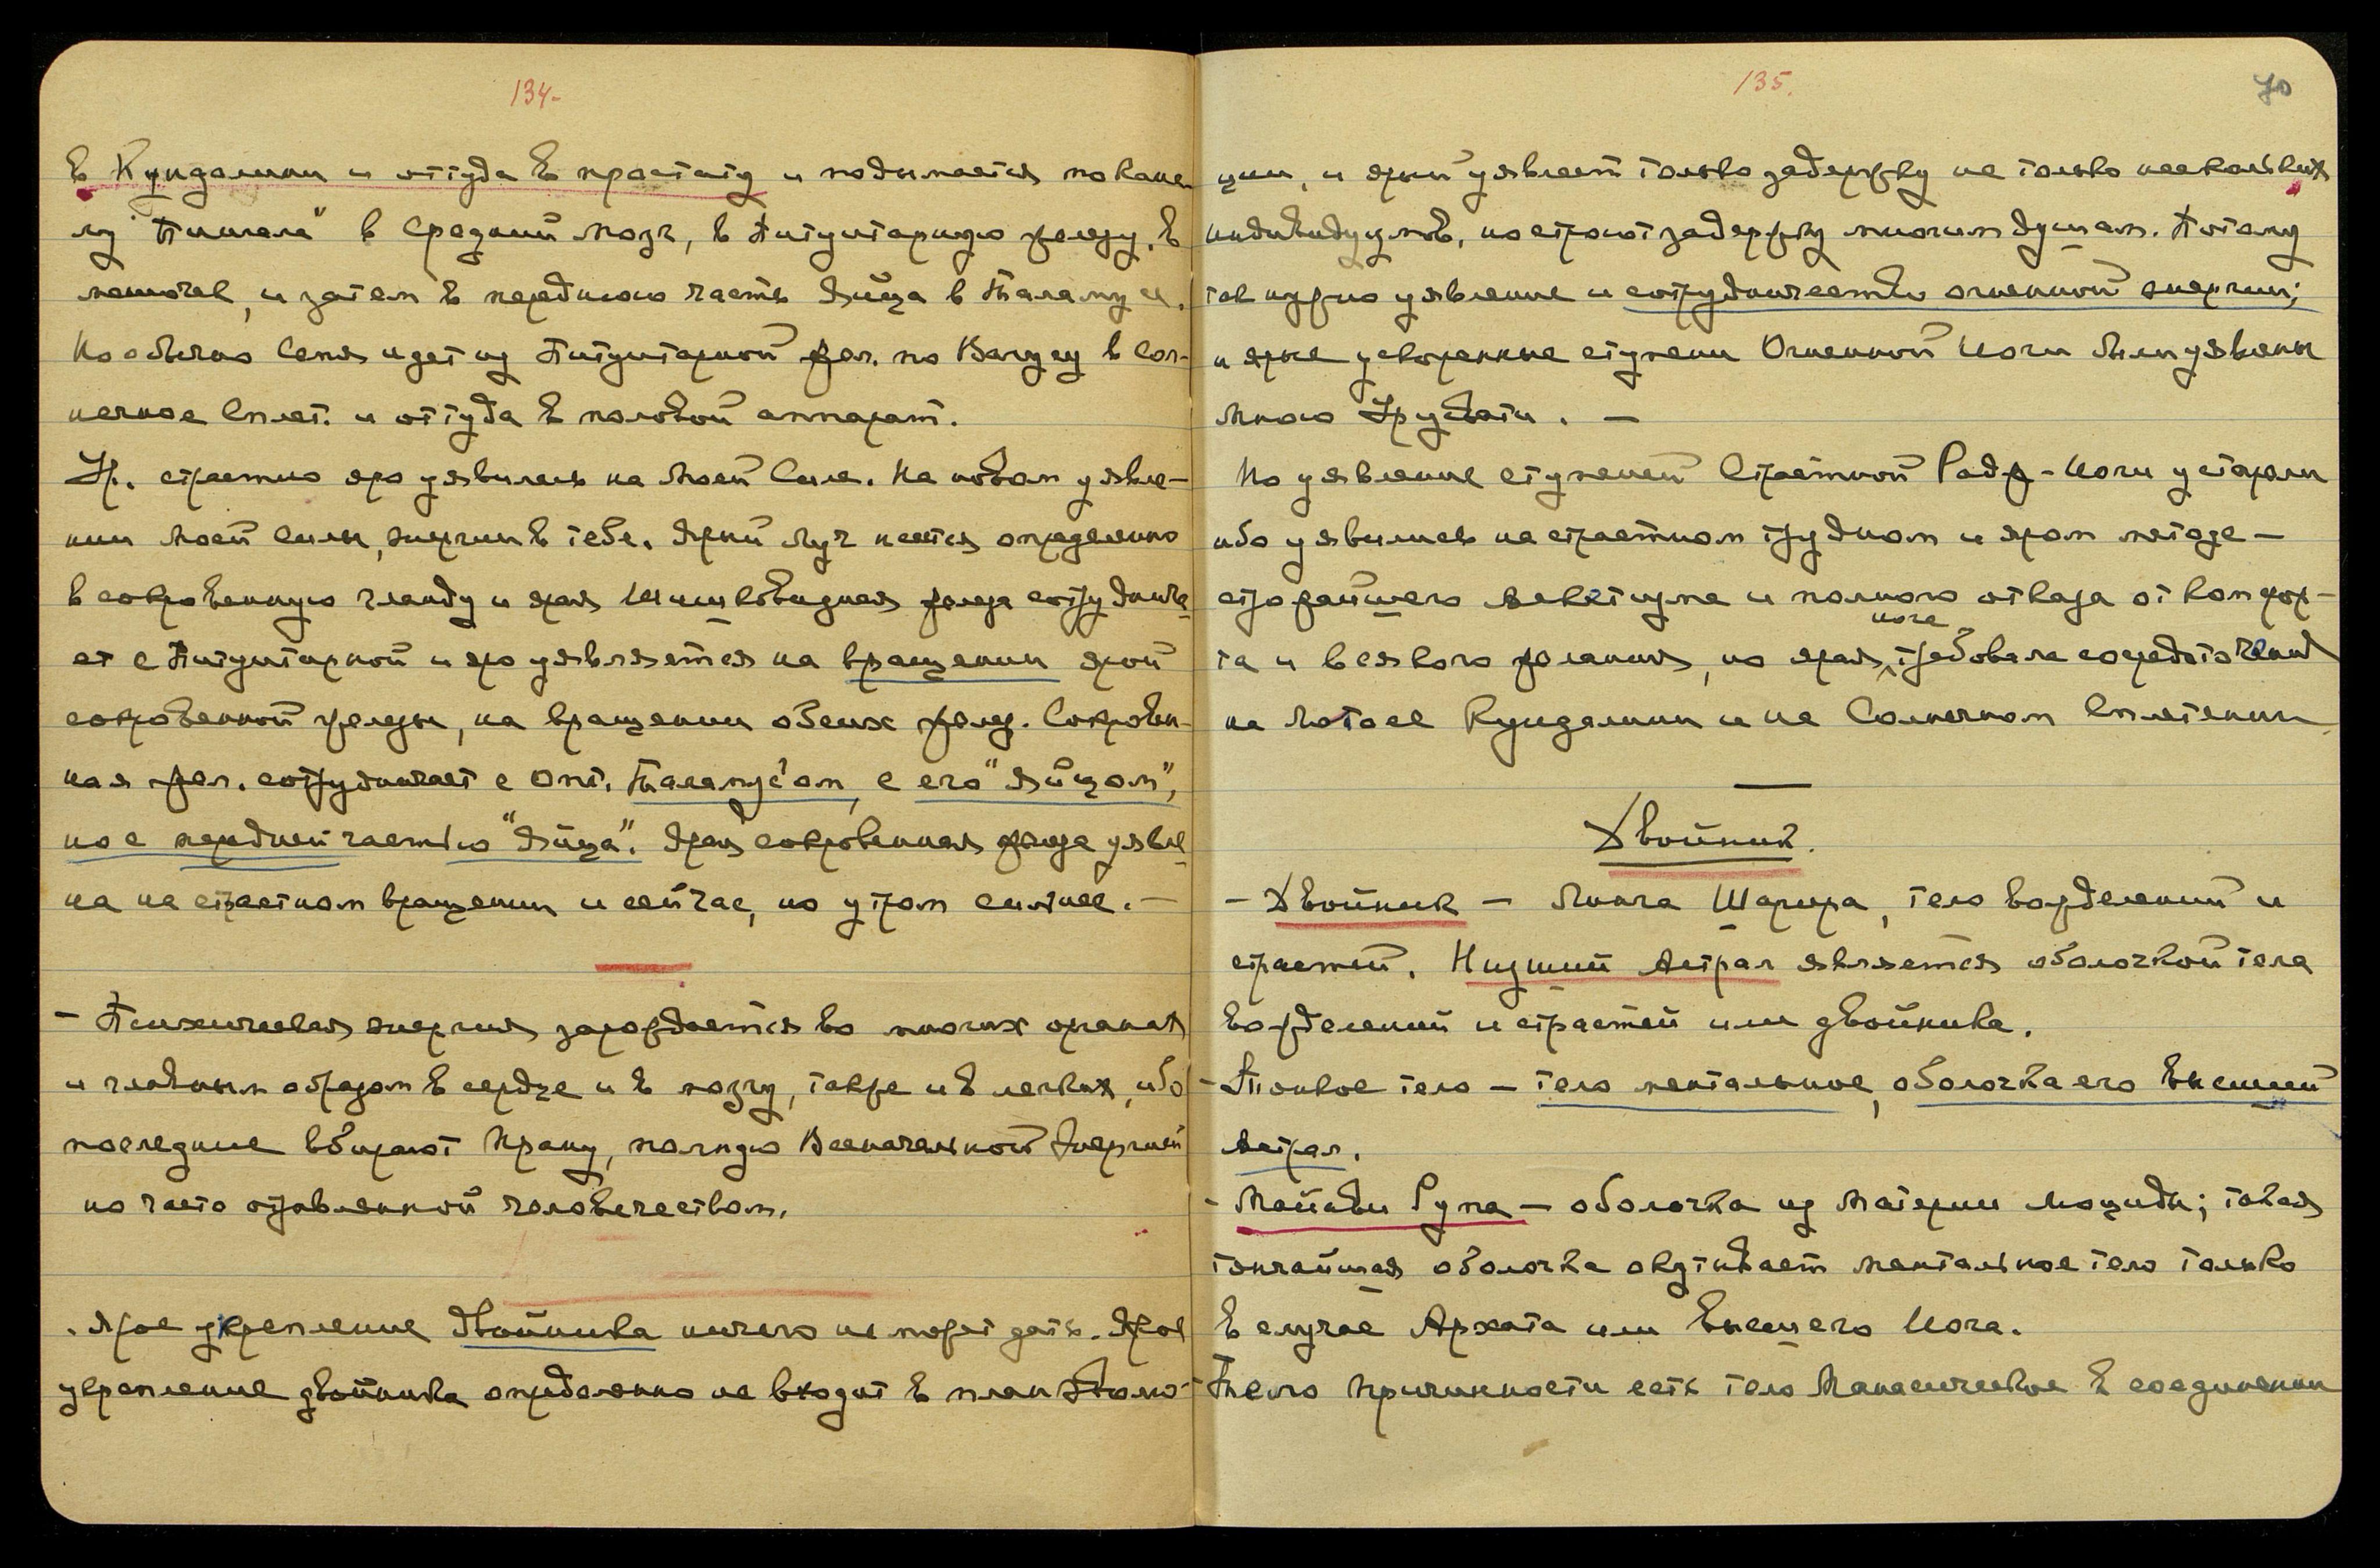 134-
в Кундалини и оттуда в простату и подымается по кана-
лу "Пингала" в средний мозг, в Питуитарную железу, в
мешочек, и затем в переднюю часть Яйца в Таламусе.
Но обычно Семя идет из Питуитарной жел. по Вагусу в Сол-
нечное Сплет. и оттуда в половой аппарат.
Ур. страстно яро уявилась на Моей Силе. На новом уявле-
нии Моей Силы, энергии в тебе. Ярый Луч несется определенно
в сокровенную гланду и ярая Шишковидная железа сотруднича-
ет с Питуитарной и яро уявляется на вращении ярой
сокровенной железы, на вращении обеих желез. Сокровен-
ная жел. сотрудничает с Опт. Таламус'ом, с его "Яйцом",
но с передней частью "Яйца". Ярая сокровенная железа уявле-
на на страстном вращении и сейчас, но утром сильнее. —
- Психическая энергия зарождается во многих органах
и главным образом в сердце и в мозгу, также и в легких, ибо
последние вбирают Прану, полную Всеначальной Энергией
но часто отравленной человечеством.
. Ярое укрепление Двойника ничего не может дать. Ярое
укрепление двойника определенно не входит в план Эволю-
135. 70
ции, и ярый уявляет только задержку не только нескольких
индивидуумов, но строит задержку многим душам. Потому
так нужно уявление и сотрудничество огненной энергии;
и ярые ускоренные ступени Огненной Йоги были уявлены
Мною Урусвати. —
Но уявление ступеней Страстной Радж-Йоги устарели
ибо уявились на страстном трудном и яром методе —
строжайшего аскетизма и полного отказа от комфор-
та и всякого желания, но ярая йога требовала сосредоточения
на Лотосе Кундалини и на Солнечном Сплетении
Двойник.
- Двойник — Линга Шарира, тело вожделений и
страстей. Низший Астрал является оболочкой тела
вожделений и страстей или двойника.
- Тонкое тело — тело ментальное, оболочка его высший
Астрал.
- Майави Рупа — оболочка из Материи Люциды; такая
тончайшая оболочка окутывает ментальное тело только
в случае Архата или Высшего Йога.
Тело Причинности есть тело Манасическое в соединении